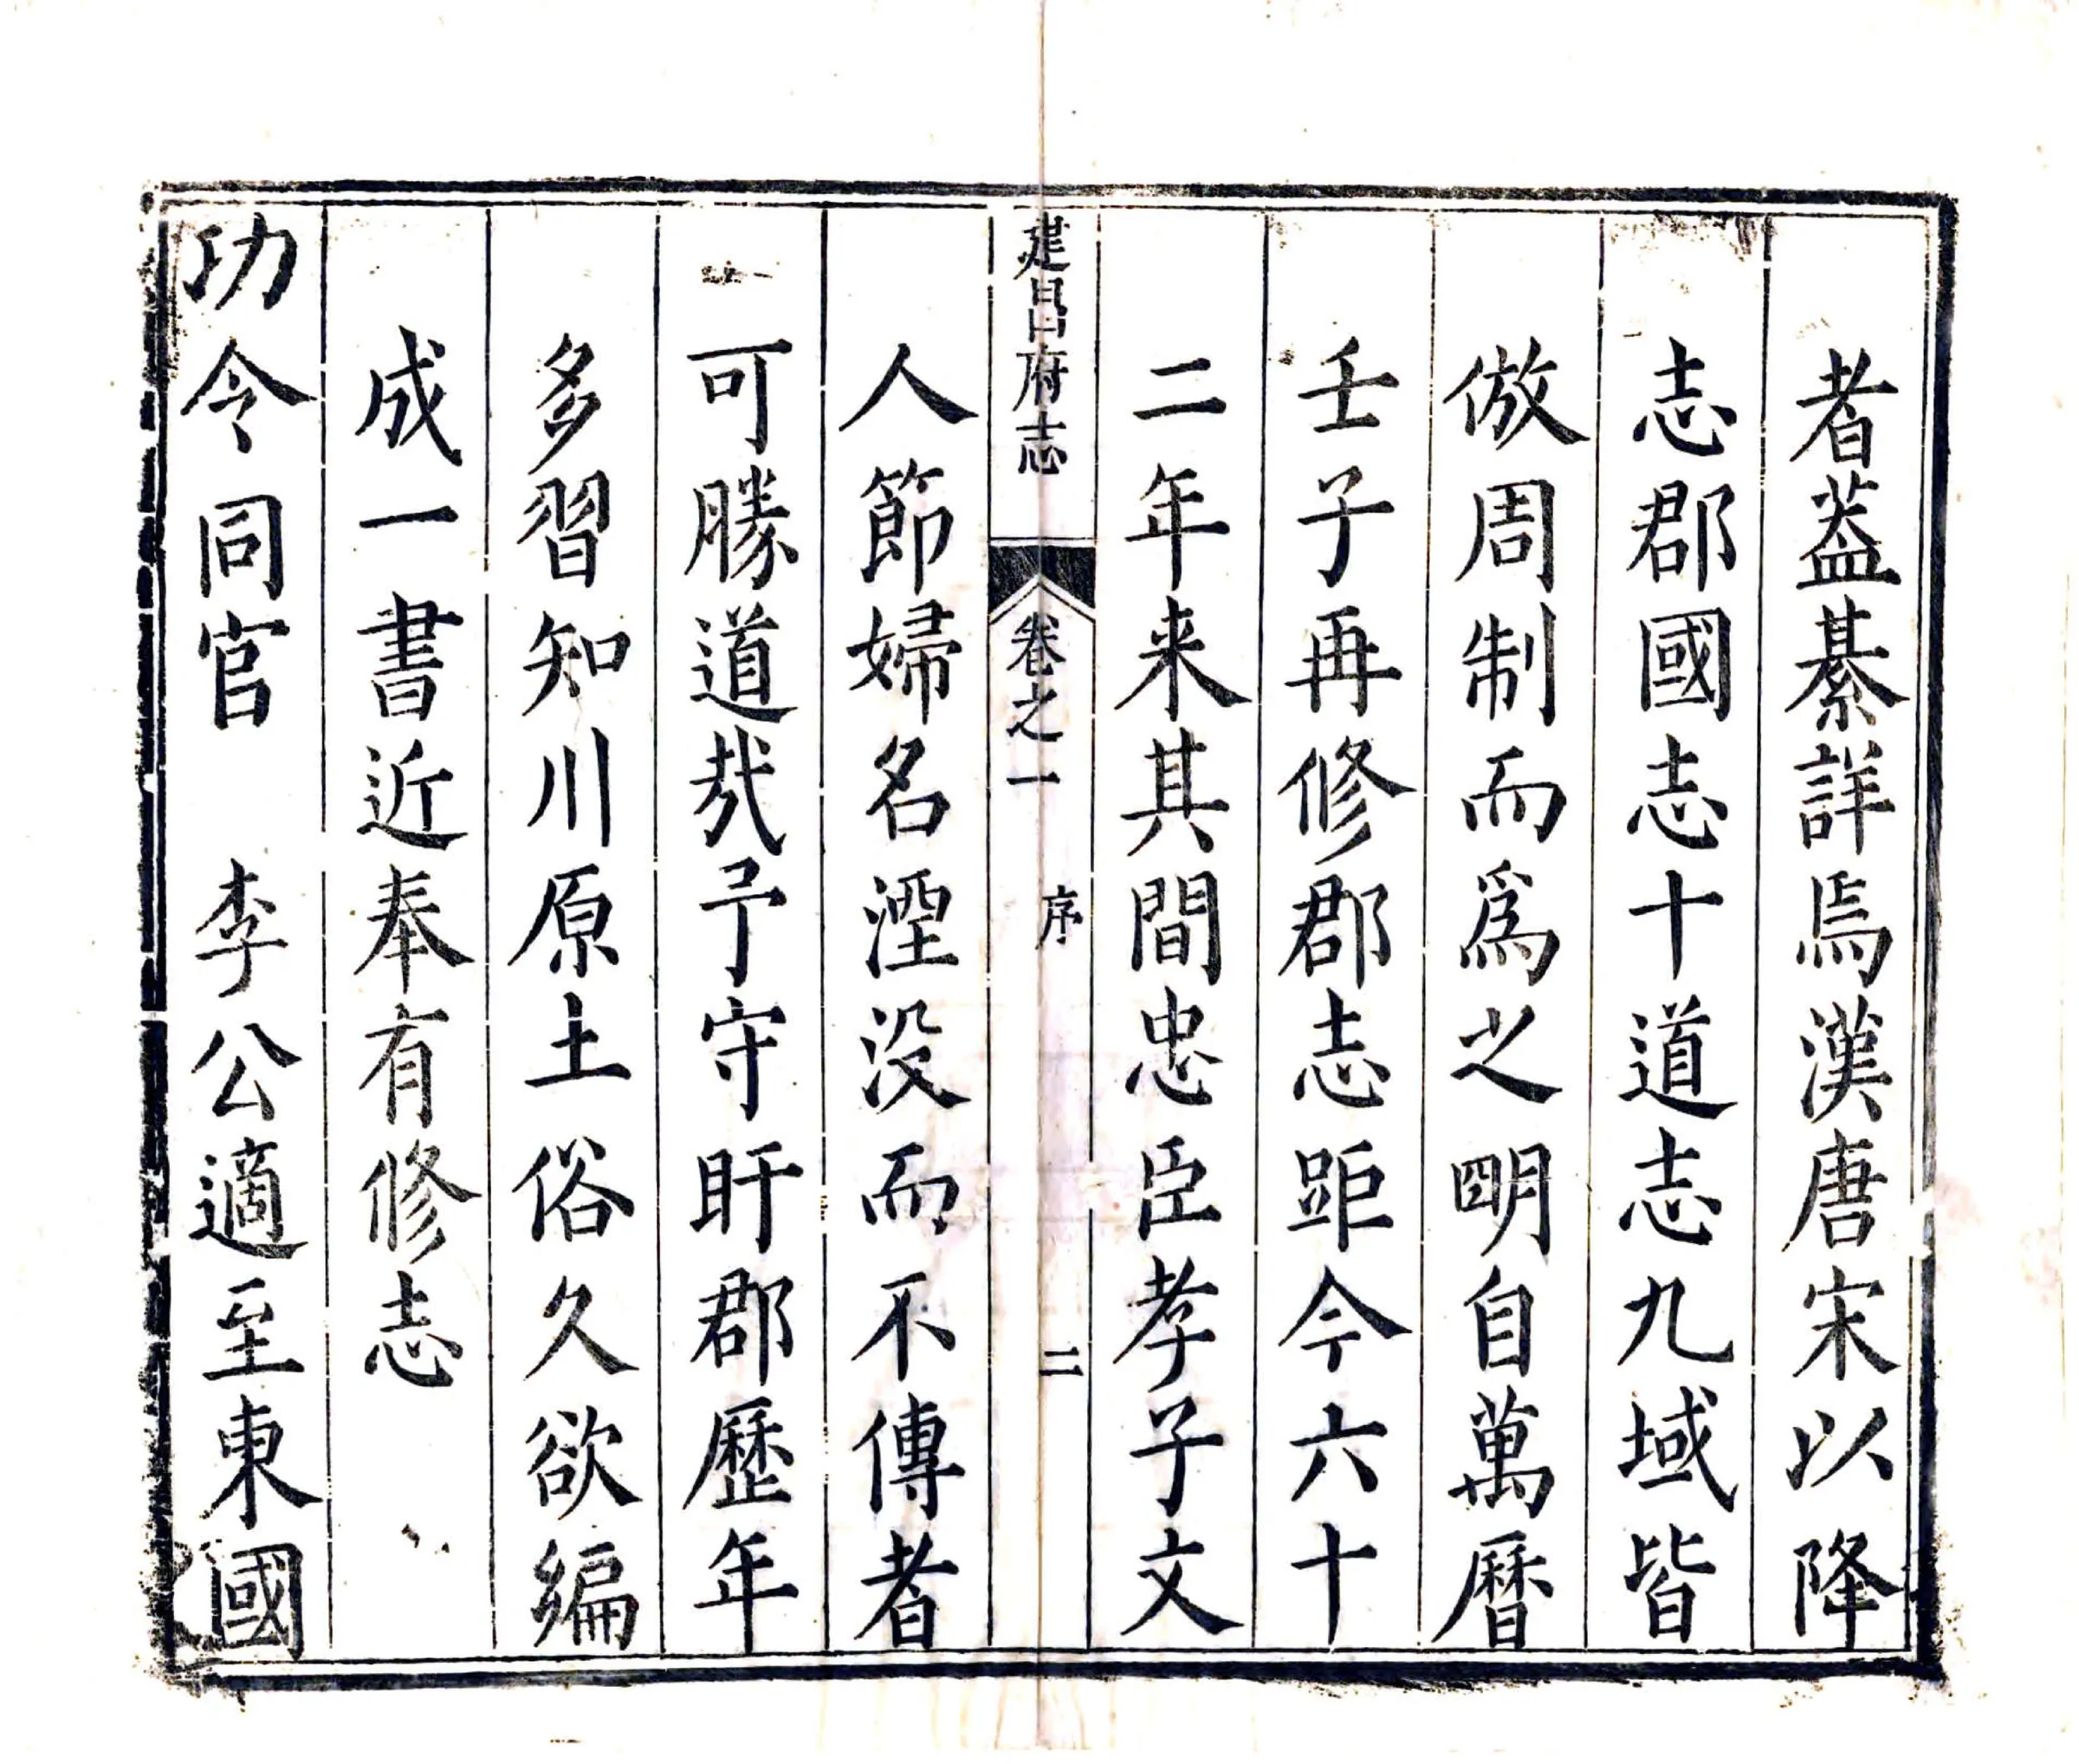 者葢綦詳焉漢唐宋以降
志郡國志十道志九域皆
倣周制而爲之明自萬曆
壬子再修郡志距今六十
二年来其間忠臣孝子文
建昌府志 卷之一 序 二
人節婦名湮没而不傳者
可勝道哉予守盱郡歷年
多習知川原土俗久欲編
成一書近奉有修志
功令同官 李公適至東國